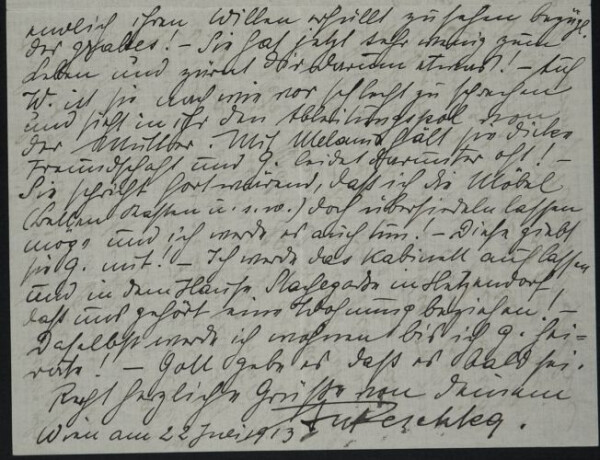 endlich ihren Willen erfüllt zu sehen bezügl.
des Gehaltes! – Sie hat jetzt sehr wenig zum
Leben und zürnt Dir darum etwas! – Auf
W. ist sie nach wie vor schlecht zu sprechen
und sieht in ihr den Ableitungspol von
der Mutter. Mit Melanie hält sie dicke
Freundschaft und G. leidet darunter oft! –
Sie schreibt fortwärend, daß ich die Möbel
(Betten Kasten u. s. w.) doch übersiedeln lassen
möge und ich werde es auch tun! – Diese giebt
sie G. mit! – Ich werde das Kabinett auflassen
und in dem Hause in Hetzendorf,
daß uns gehört eine Wohnung beziehen! –
Daselbst werde ich wohnen bis ich G. hei-
rate! – Gott gebe es daß es bald sei.
Recht herzliche Grüße von Deinem
Wien am 22 Juli 1913 Ant Peschka.